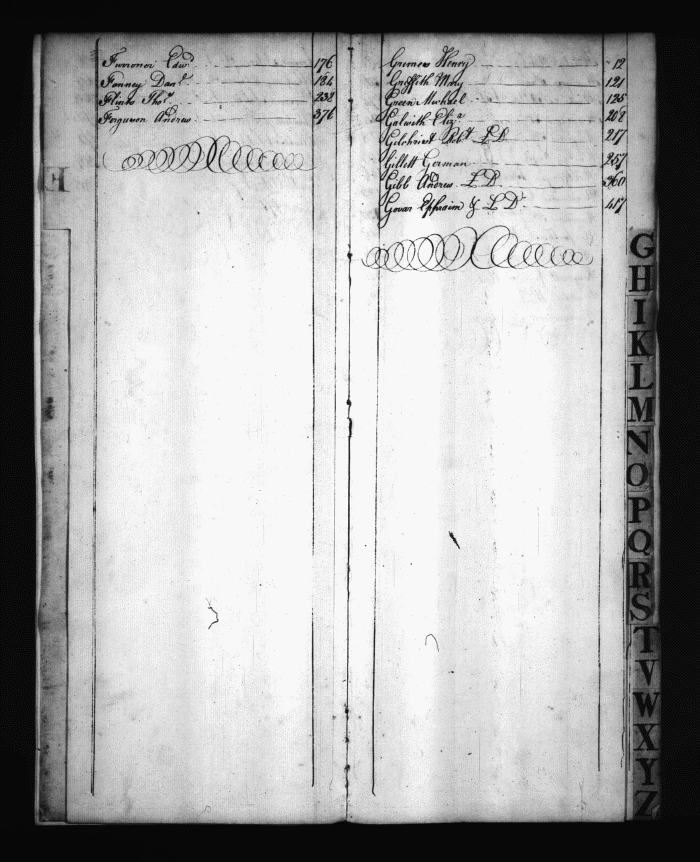 Furronor Edwd 176
Fanney Danl 184
Flint Thos 232
Ferguson Andrew 376
F
Grimes Henry 12
Griffith Mary 121
Green Michael 125
Galwith Eliza 208
Gilchrist Robt L D 217
Gillett German 257
Gibb Andrew L D 360
Govan Ephraim J L Dr 417
G
H
I
K
L
M
N
O
P
Q
R
S
T
V
W
X
Y
Z